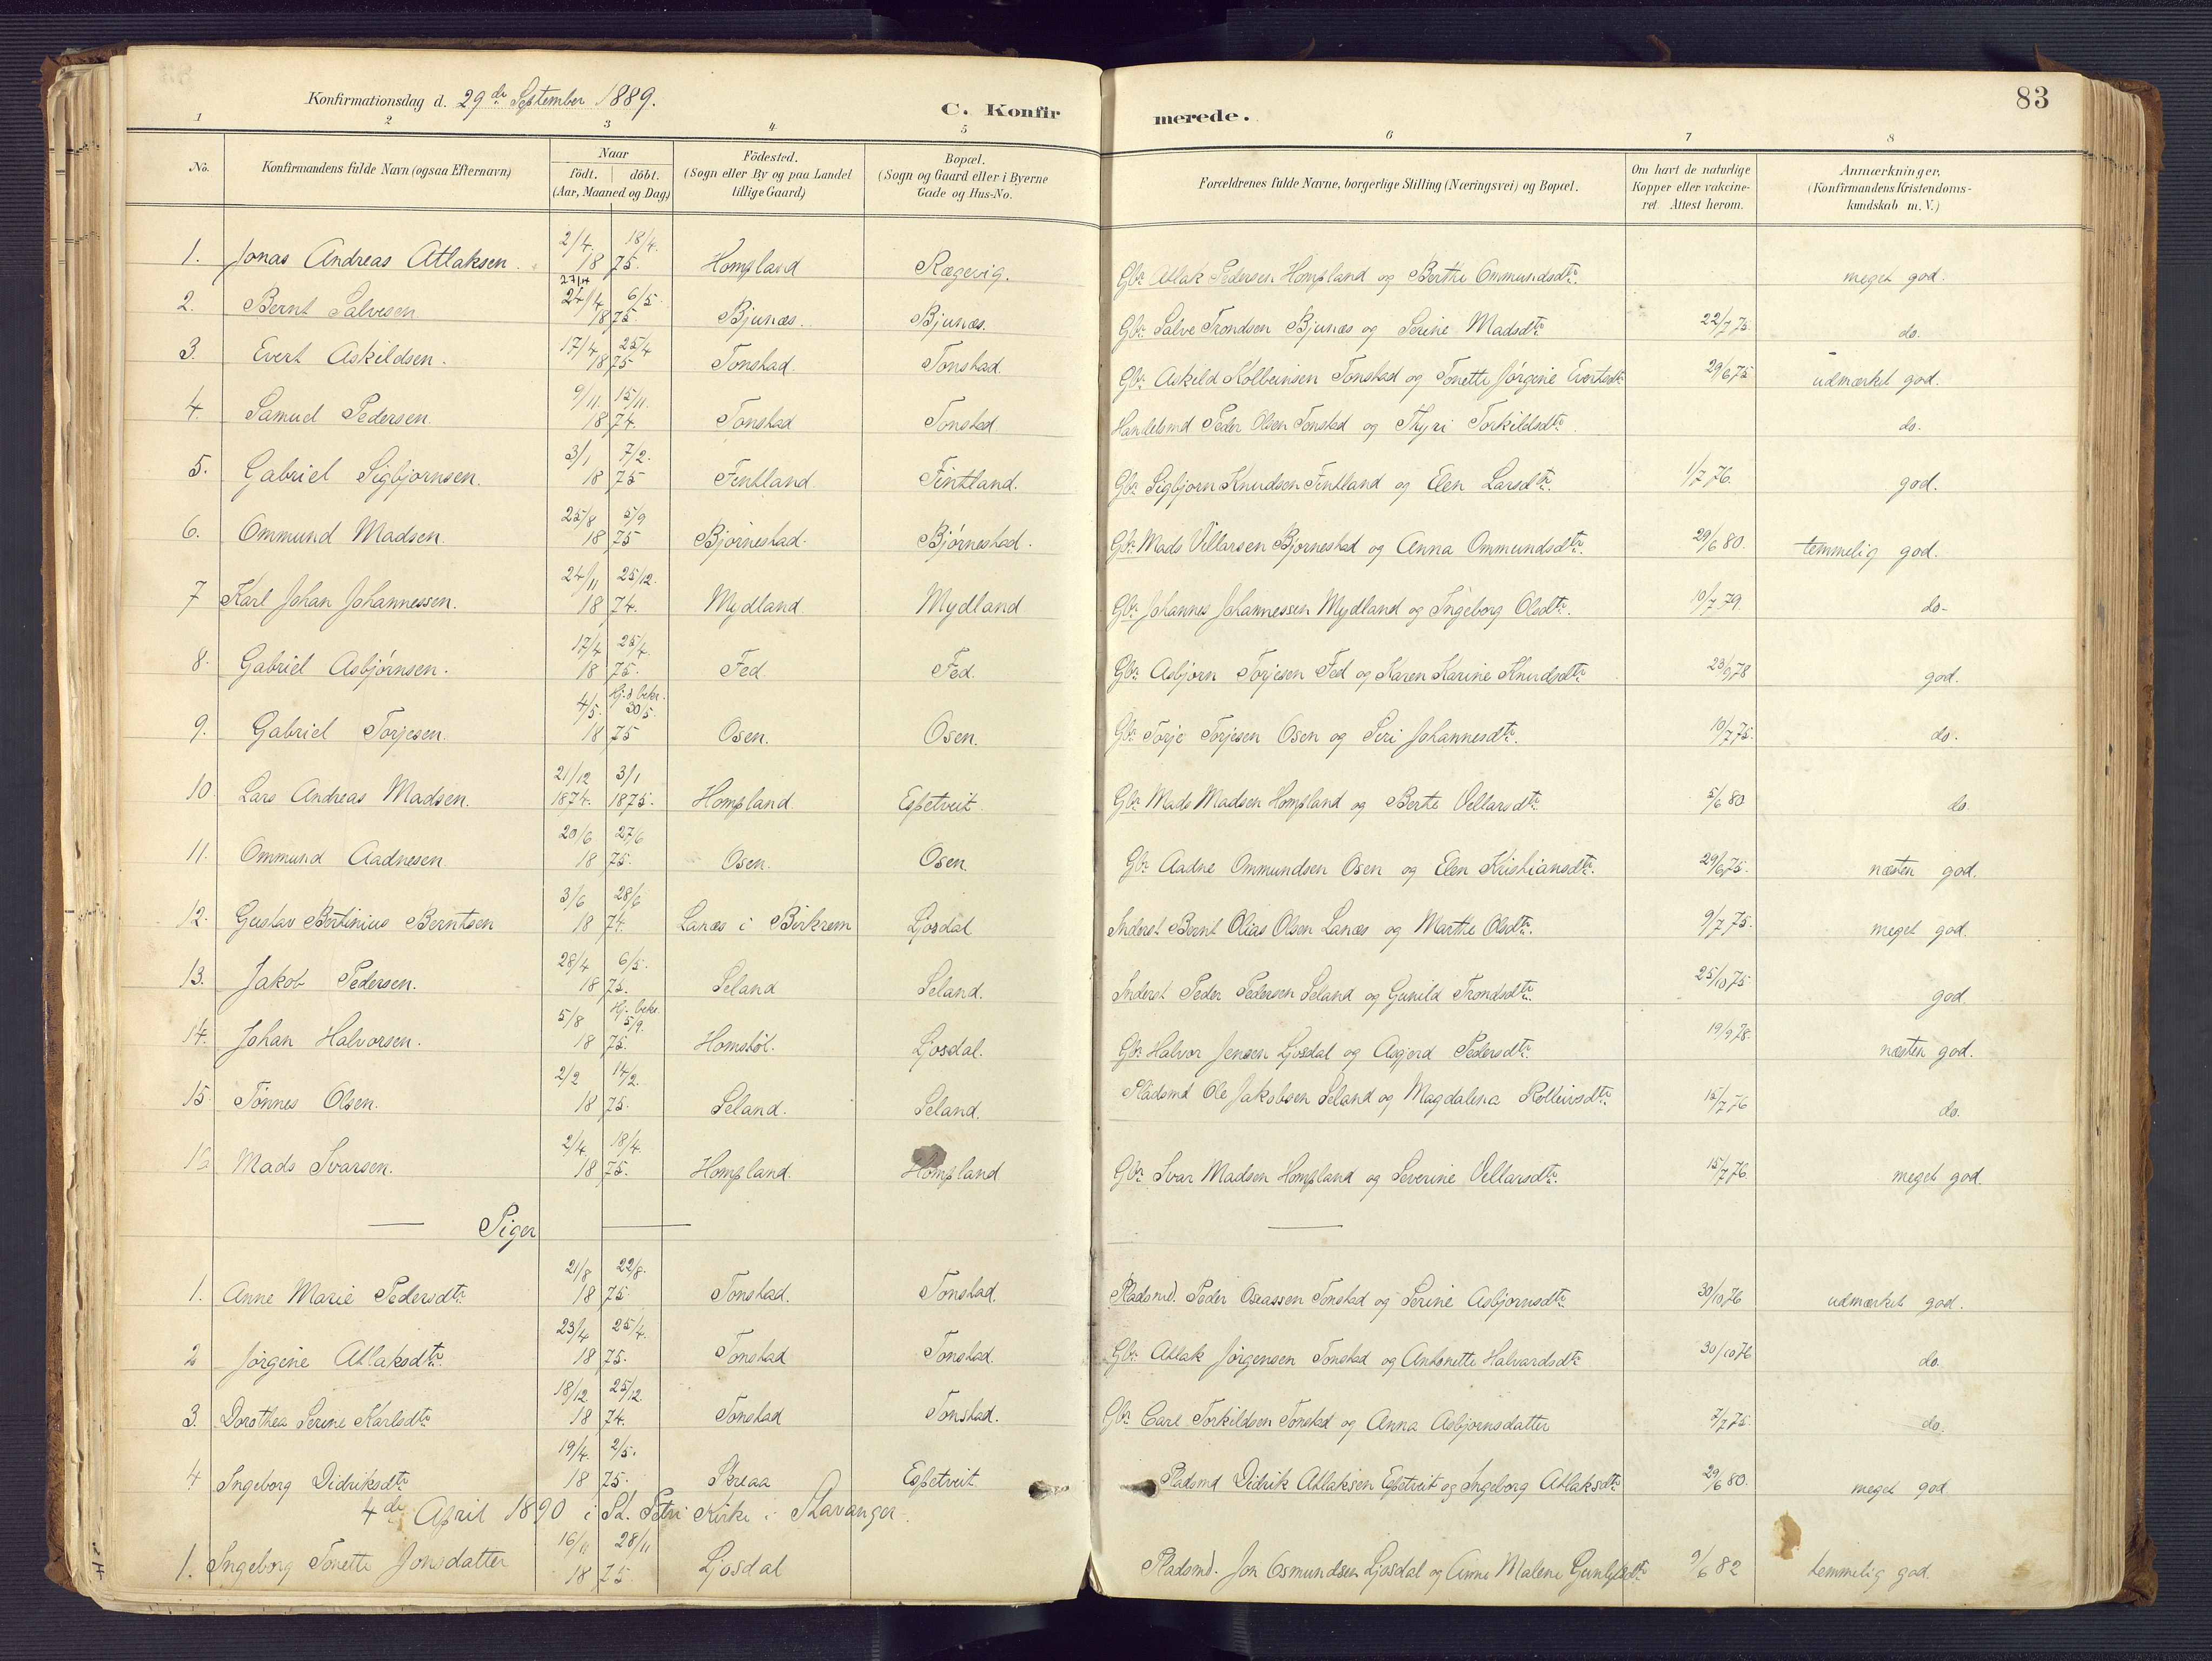 83
Konfirmationsdag d. 29de September 1889.
C. Konfirmerede.
1 2 3 4 5 6 7 8
No. Konfirmandens fulde Navn (ogsaa Efternavn) Naar födt. döbt. (Aar, Maaned og Dag) Födested. (Sogn eller By og paa Landet tillige Gaard) Bopæl. (Sogn og Gaard eller i Byerne Gade og Hus-No. Forældrenes fulde Navne, borgerlige Stilling (Næringsvei) og Bopæl. Om havt de naturlige Kopper eller vakcineret. Attest herom. Anmærkninger, (Konfirmandens Kristendomskundskab m. V.)
1. Jonas Andreas Atlaksen. 2/4. 18/4. 1875. Hompland Rægevig. Gbr. Atlak Pedersen Hompland og Berthe Ommundsdtr. meget god.
2. Bernt Salvesen 24/4 6/5. 1875. Bjunæs. Bjunæs. Gbr. Salve Trondsen Bjunæs og Serine Madsdtr. 22/7 75. do.
3. Evert Askildsen. 17/4 25/4 1875 Tonstad. Tonstad. Gbr. Askild Kolbeinsen Tonstad og Tonette Jørgine Evertsdtr. 29/6 75 udmærket god.
4. Samuel Pedersen. 9/11. 15/11. 1874. Tonstad Tonstad. Handelsmd Peder Olsen Tonstad og Thyri Torkildsdtr. do.
5. Gabriel Sigbjørnsen. 3/1 7/2. 1875 Fintland. Fintland. Gbr. Sigbjørn Knudsen Fintland og Elen Larsdtr. 1/7 76. god.
6. Ommund Madsen. 25/8 5/9 1875 Bjørnestad. Bjørnestad. Gbr. Mads Villarsen Bjørnestad og Anna Ommundsdtr. 29/6 80. temmelig god.
7 Karl Johan Johannessen. 24/11 25/12. 1874. Mydland Mydland Gbr. Johannes Johannessen Mydland og Ingeborg Olsdtr. 10/7 79. do.
8. Gabriel Asbjørnsen. 17/4 25/4. 1875. Fed. Fed. Gbr. Asbjørn Torjesen Fed og Karen Karine Knudsdtr. 23/9 78 god.
9. Gabriel Torjesen. 4/5. Hj.d. bekr. 30/5. 1875 Osen. Osen. Gbr. Torje Torjesen Osen og Siri Johannesdtr. 10/7 75. do.
10. Lars Andreas Madsen. 21/12 1874. 3/1 1875. Hompland Espetveit. Gbr. Mads Madsen Hompland og Berte Vellarsdtr. 5/6 80 do.
11. Ommund Aadnesen 20/6 27/6 1875. Osen. Osen. Gbr. Aadne Ommundsen Osen og Elen Kristiansdtr. 29/6 75. næsten god.
12. Gustav Bertinius Berntsen 3/6 28/6 1874. Lanæs i Birkrem Ljosdal Inderst Bernt Olias Olsen Lanæs og Marthe Olsdtr. 9/7 75. meget god.
13. Jakob Pedersen. 28/4 6/5. 1875. Seland Seland. Inderst Peder Pedersen Seland og Gunild Trondsdtr. 25/10 75. god
14. Johan Halvorsen. 5/8 Hj. bekr. 5/9. 1875. Homstøl. Ljosdal. Gbr. Halvor Jensen Ljosdal og Asgjerd Pedersdtr. 19/9 78. næsten god.
15 Tønnes Olsen. 2/2 14/2. 1875. Seland. Seland. Pladsmd Ole Jakobsen Seland og Magdalena 15/7 76 do.
16 Mads Ivarsen. 2/4 18/4. 1875. Hompland. Hompland Gbr. Ivar Madsen Hompland og Severine Vellarsdtr. 15/7 76. meget god.
Piger
1. Anne Marie Pedersdtr. 21/8 22/8. 1875 Tonstad. Tonstad. Pladsmd. Peder Oseassen Tonstad og Serine Asbjørnsdtr. 30/10 76 udmærket god.
2 Jørgine Atlaksdtr. 23/4 25/4. 1875. Tonstad Tonstad. Gbr. Atlak Jørgensen Tonstad og Antonette Halvardsdtr. 30/10 76 do.
3. Dorothea Serine Karlsdtr. 18/12 25/12. 1874. Tonstad Tonstad. Gbr. Carl Torkildsen Tonstad og Anna Asbjørnsdatter 7/7 75. do.
4 Ingeborg Didriksdtr. 19/4. 2/5. 1875. Skreaa Espetveit Pladsmd Didrik Atlaksen Espetveit og Ingeborg Atlaksdtr. 29/6 80. meget god
4de April 1890 i St. Petri Kirke i Stavanger.
1. Ingeborg Tonette Jonsdatter 16/11 28/11 1875 Ljosdal Pladsmd. Jon Osmundsen Ljosdal og Anne Malene 9/6 82 temmelig god.